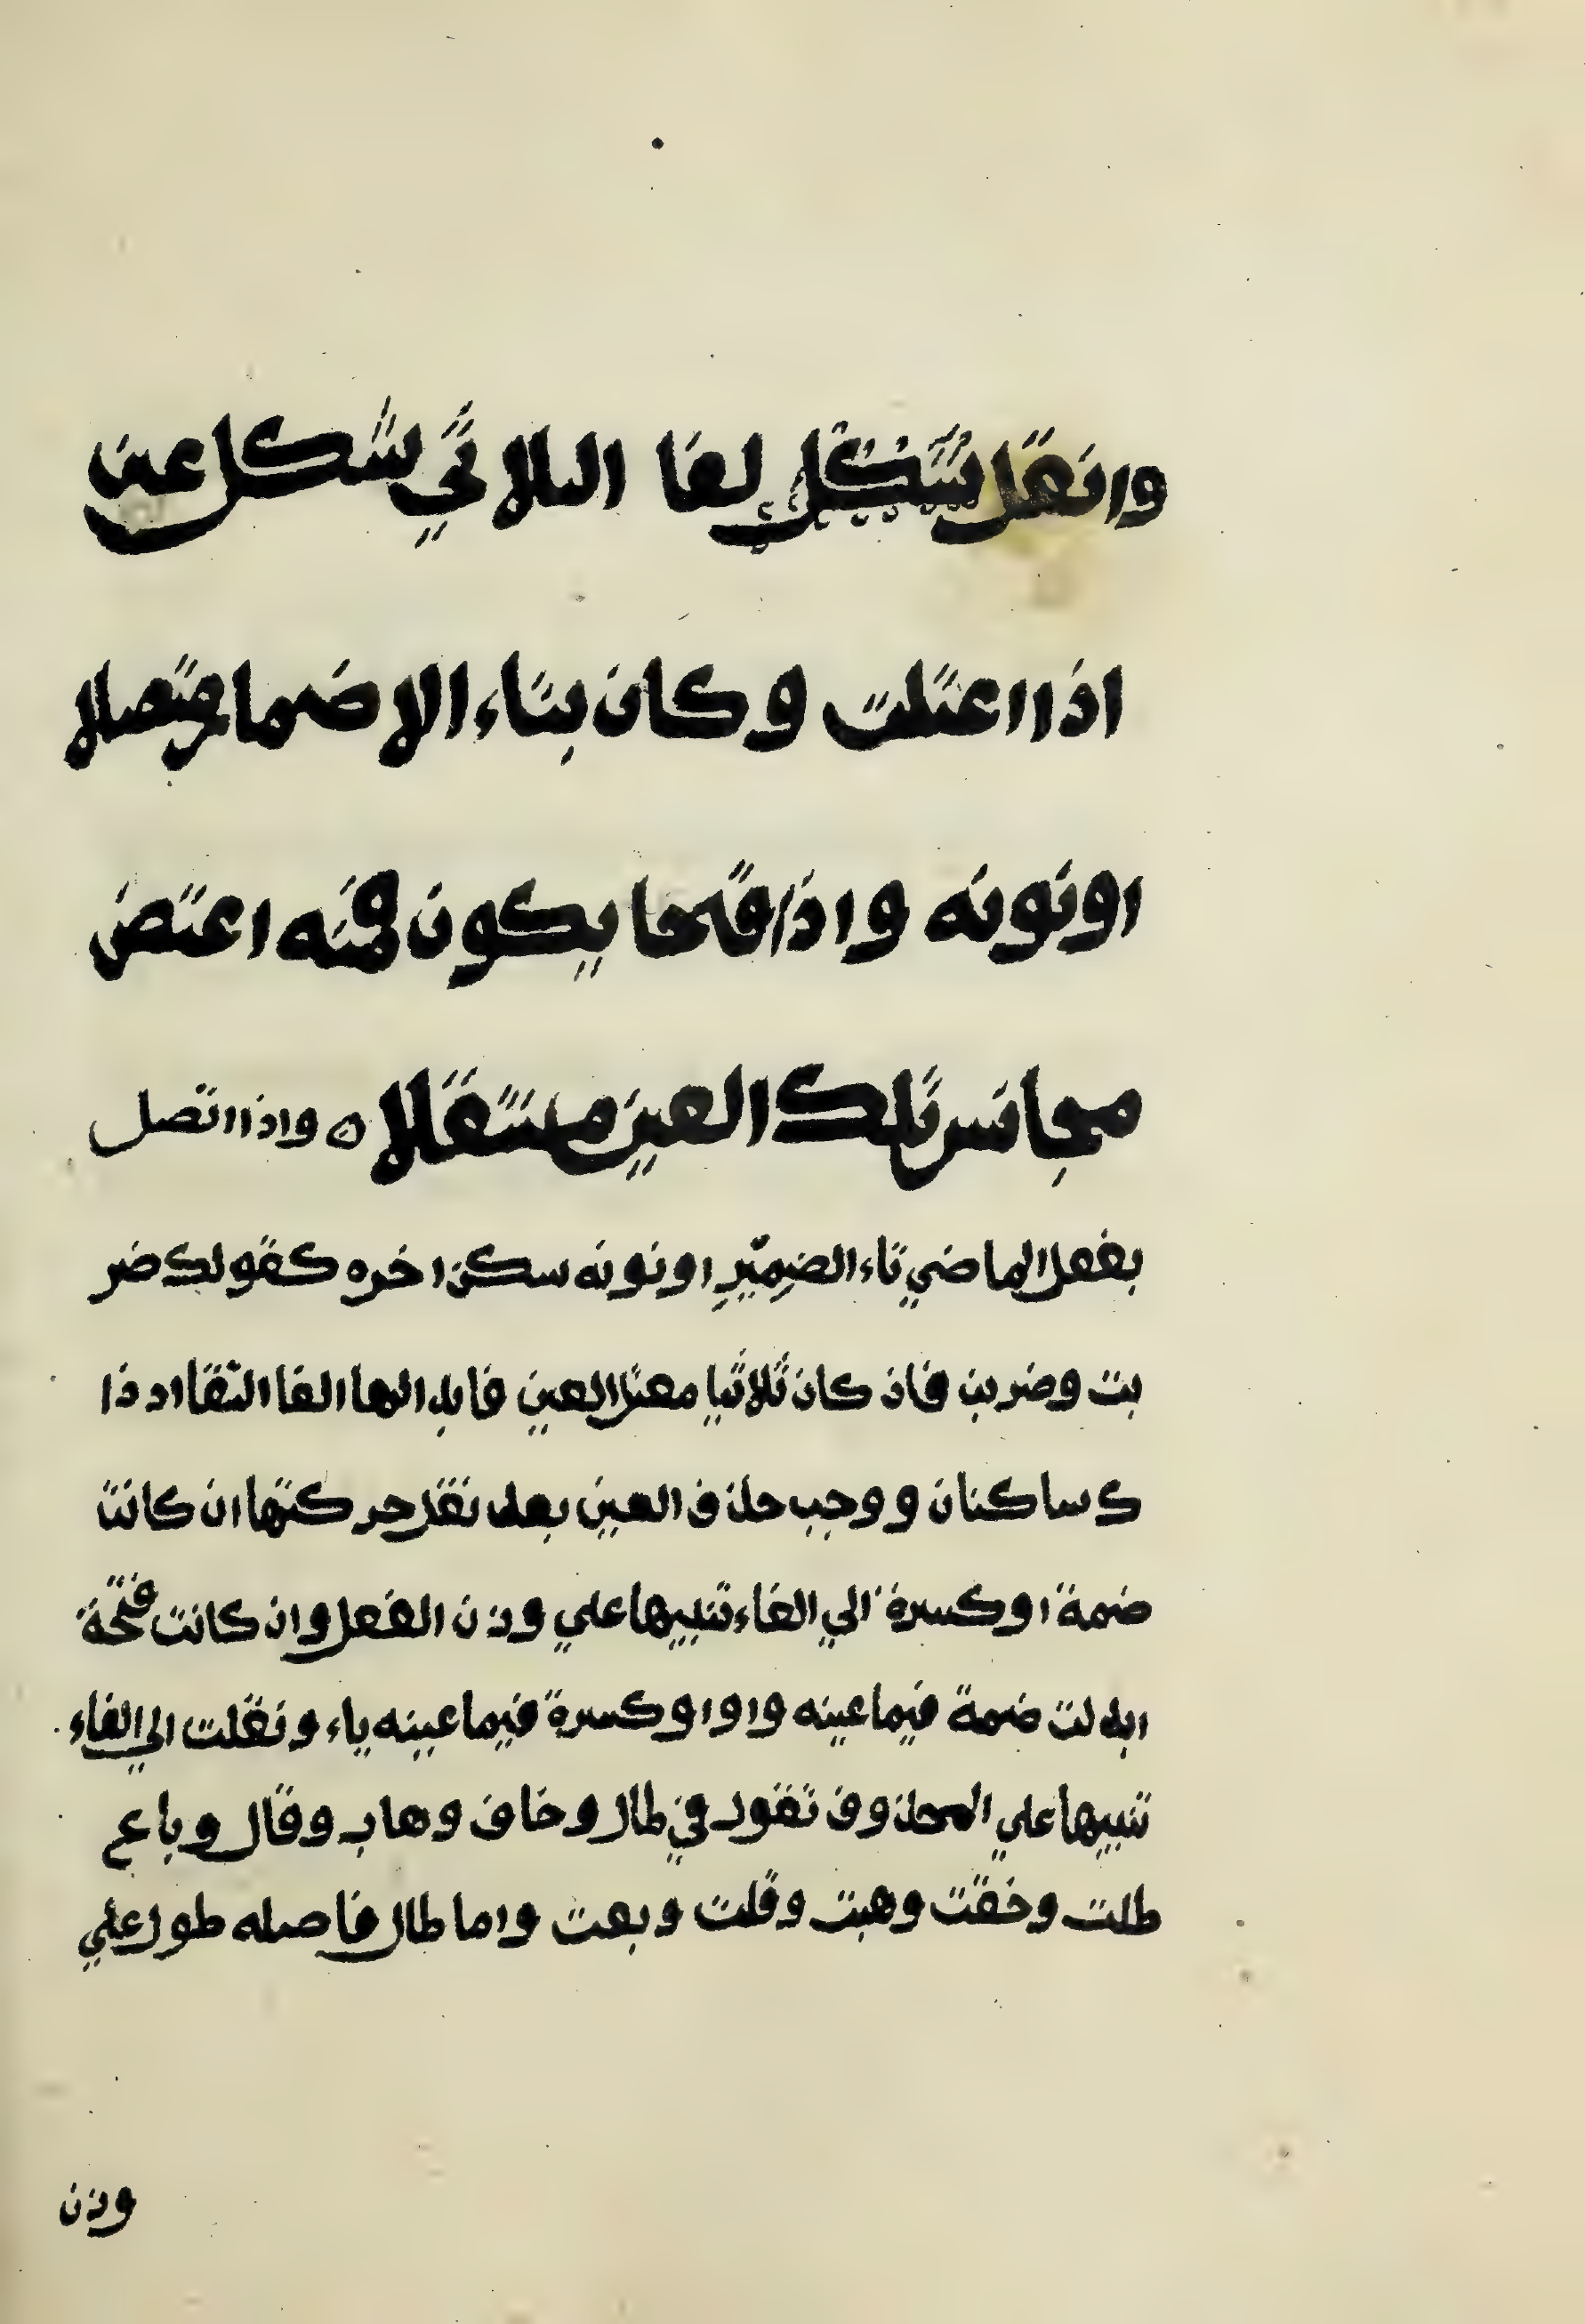 وانقل شكل لفا الثلاثي شكل عين
اذا اعتلت وكان بتاء الاضما متصلا
اونونه واذا فتحا يكون فمنه اعتض
مجانس تلك العين منتقلا ه واذا اتصل
بفعل الماضي تاء الضمير اونونه سكن اخره كقولك ضر
بت وضربن فان كان ثلاثيا معتل العين فابدالها الفا التقا اذ ذا
ك ساكنان ووجب حذف العين بعد نقل حركتها ان كانت
ضمة اوكسرة الي الفاء تنبيها علي وزن الفعل وان كانت فتحة
ابدلت ضمة فيما عينه واو اوكسرة فيما عينه ياء ونقلت الي الفاء
تنبيها علي المحذوف تقول في طال وخاف وهاب وقال وباع
طلت وخفت وهبت وقلت وبعت واما طال فاصله طول علي
وزن